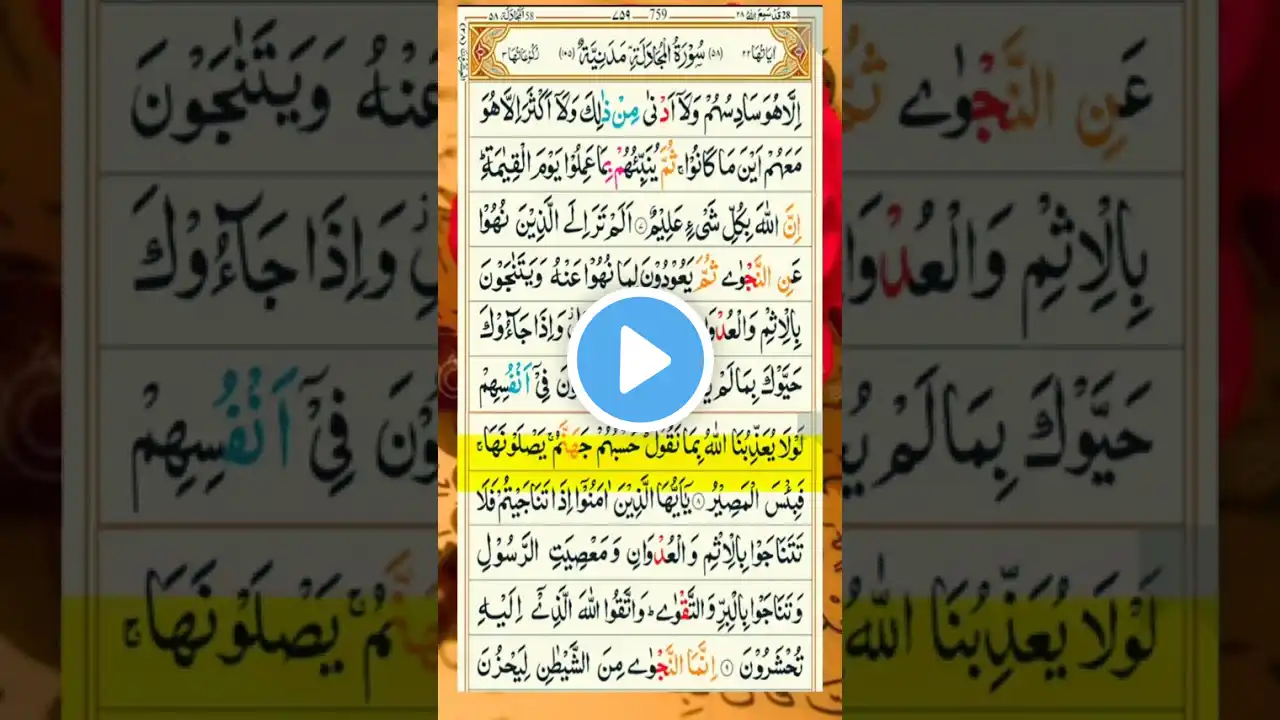 58 المجادلة ٥٨
٧٥٩ — 759
28 قد سمع الله ٢٨
اٰيَاتُهَا ٢٢
(٥٨) سُوْرَةُ الْمُجَادَلَةِ مَدَنِيَّةٌ (١٠٥)
رُكُوْعَاتُهَا ٣
اِلَّا هُوَ سَادِسُهُمْ وَلَآ اَدْنٰى مِنْ ذٰلِكَ وَلَآ اَكْثَرَ اِلَّا هُوَ
مَعَهُمْ اَيْنَ مَا كَانُوْاۚ ثُمَّ يُنَبِّئُهُمْ بِمَا عَمِلُوْا يَوْمَ الْقِيٰمَةِؕ
اِنَّ اللّٰهَ بِكُلِّ شَىْءٍ عَلِيْمٌ ۝٧ اَلَمْ تَرَ اِلَى الَّذِيْنَ نُهُوْا
عَنِ النَّجْوٰى ثُمَّ يَعُوْدُوْنَ لِمَا نُهُوْا عَنْهُ وَيَتَنٰجَوْنَ
بِالْاِثْمِ وَالْعُدْوَا وَاِذَا جَآءُوْكَ
حَيَّوْكَ بِمَا لَمْ فِىْۤ اَنْفُسِهِمْ
لَوْلَا يُعَذِّبُنَا اللّٰهُ بِمَا نَقُوْلُؕ حَسْبُهُمْ جَهَنَّمُۚ يَصْلَوْنَهَاۚ
فَبِئْسَ الْمَصِيْرُ ۝٨ يٰۤاَيُّهَا الَّذِيْنَ اٰمَنُوْۤا اِذَا تَنَاجَيْتُمْ فَلَا
تَتَنَاجَوْا بِالْاِثْمِ وَالْعُدْوَانِ وَمَعْصِيَتِ الرَّسُوْلِ
وَتَنَاجَوْا بِالْبِرِّ وَالتَّقْوٰىؕ وَاتَّقُوا اللّٰهَ الَّذِىْۤ اِلَيْهِ
تُحْشَرُوْنَ ۝٩ اِنَّمَا النَّجْوٰى مِنَ الشَّيْطٰنِ لِيَحْزُنَ